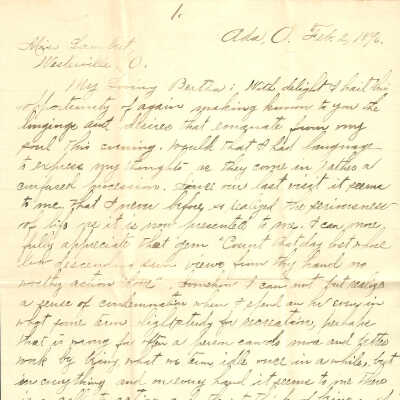 1.
Ada, O. Feb 2, 1896.
Miss Lambert,
Westerville, O.
My Loving Bertha: With delight I hail this
opportunity of again making known to you the
longings and desires that emanate from my
soul this evening. Would that I had language
to express my thoughts as they come in rather a
confused procession. Since our last visit it seems
to me that I never before so realized the seriousness
of life as it is now presented to me. I can more
fully appreciate that gem "Count that day lost whose
low descending sun views from thy hand no
worthy action done". Somehow I can not but realize
a sense of condemnation when I spend an he even in
what some term light study for recreation, perhaps
that is wrong for often a person can do more and better
work by being what we term idle once in a while, but
in everything and on every hand it seems to me there